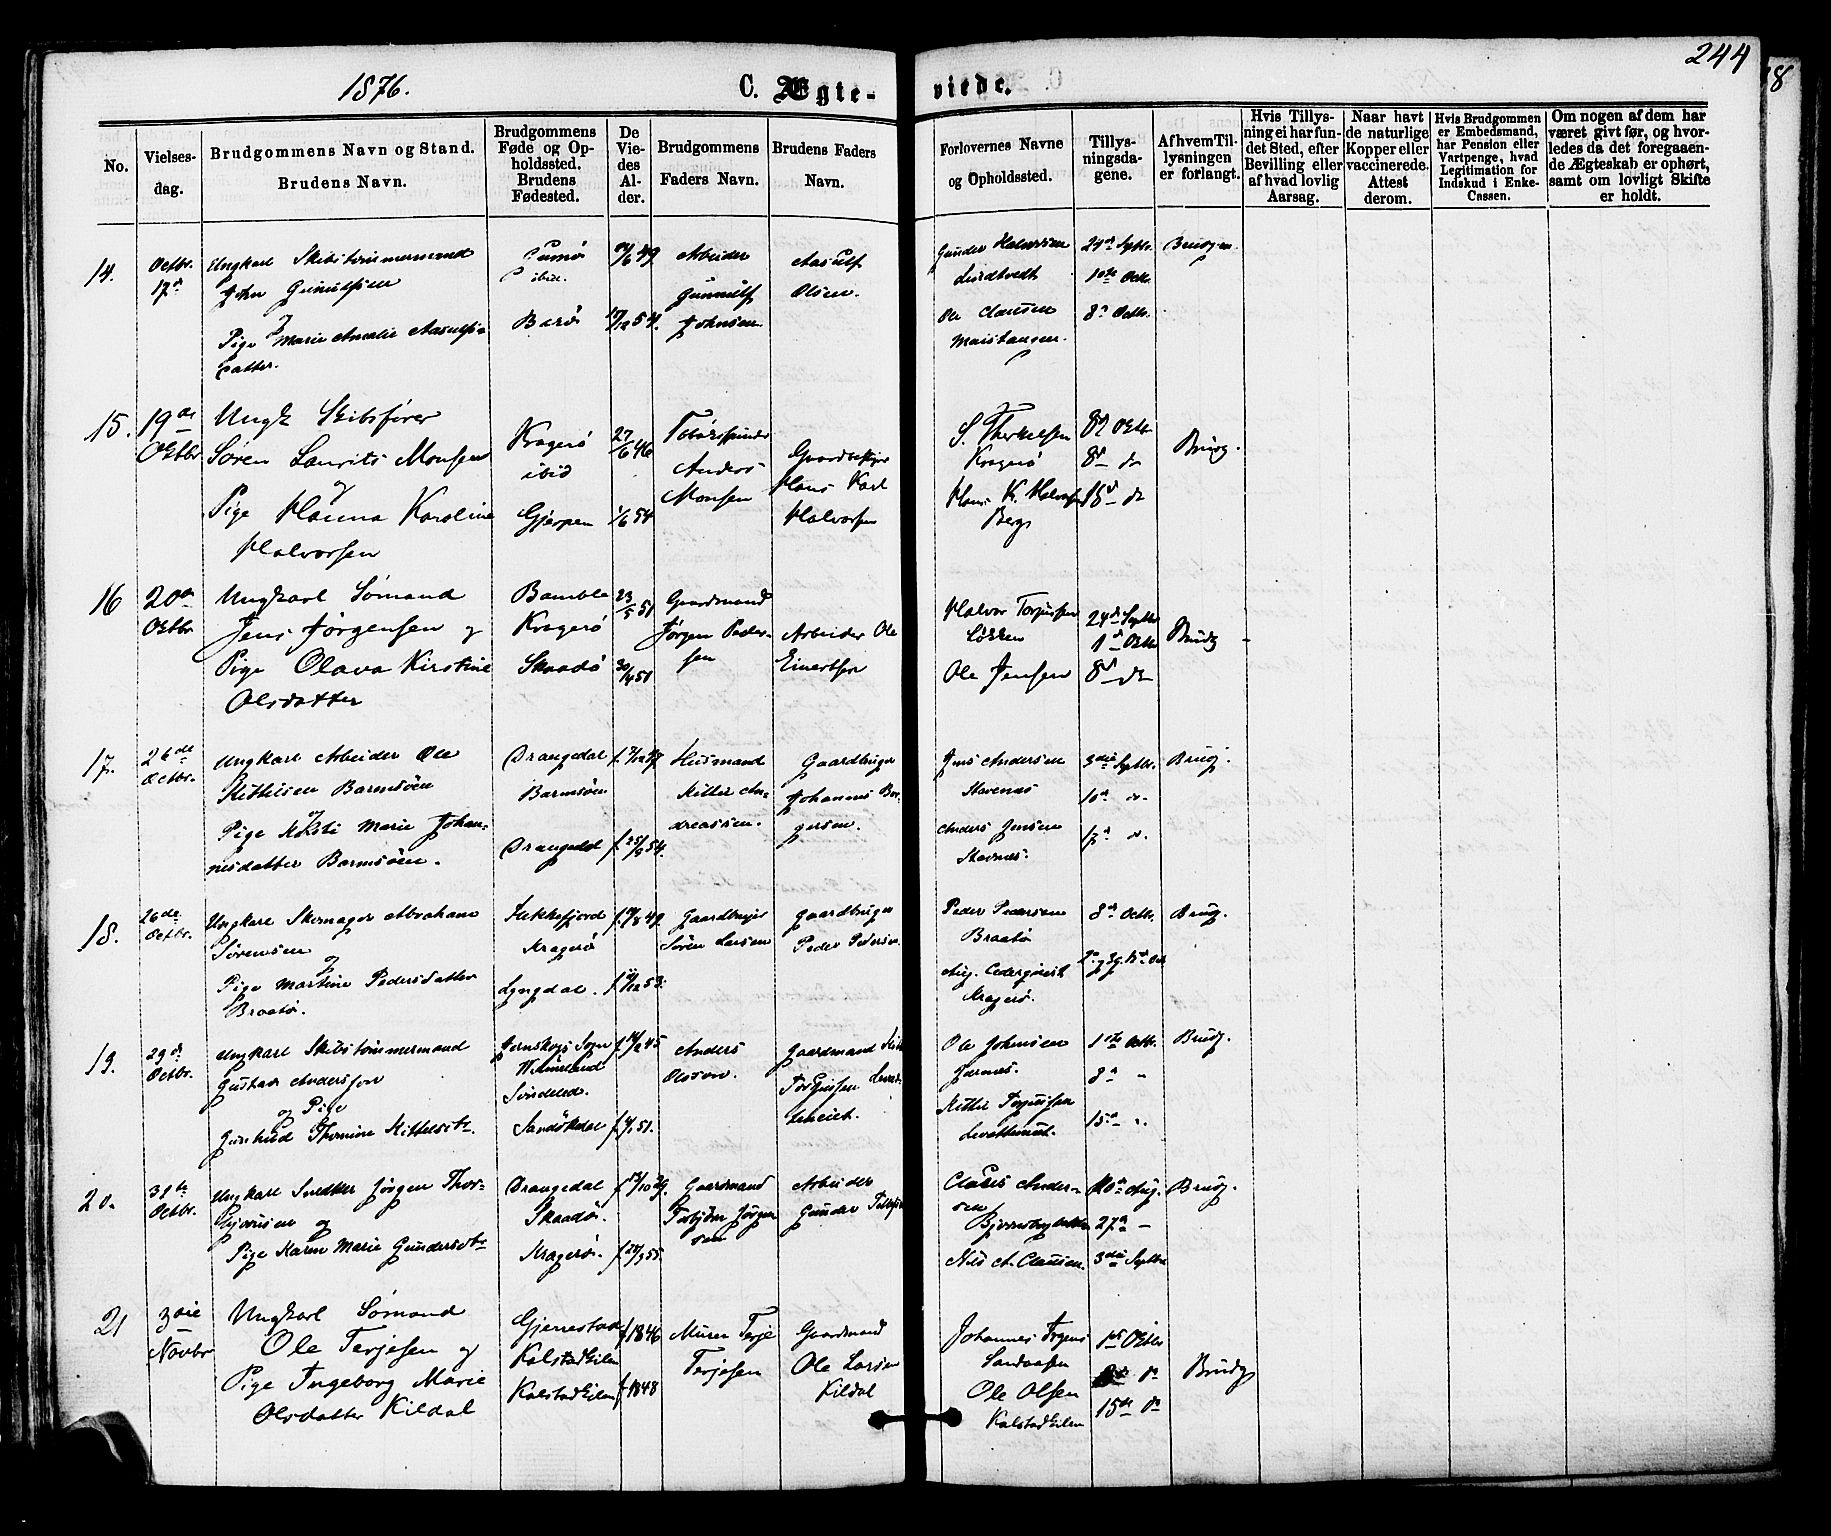 1876.
C. Ægte-
viede.
244
8
No.
Vielses-
dag.
Brudgommens Navn og Stand.
Brudens Navn.
Brudgommens
Føde og Op-
holdssted.
Brudens
Fødested.
De
Vie-
des
Al-
der.
Brudgommens
Faders Navn.
Brudens Faders
Navn.
Forlovernes Navne
og Opholdssted.
Tillys-
ningsda-
gene.
Af hvem Til-
lysningen
er forlangt.
Hvis Tillys-
ning ei har fun-
det Sted, efter
Bevilling eller
af hvad lovlig
Aarsag.
Naar havt
de naturlige
Kopper eller
vaccinerede.
Attest
derom.
Hvis Brudgommen
er Embedsmand,
har Pension eller
Vartpenge, hvad
Legitimation for
Indskud i Enke-
Cassen.
Om nogen af dem har
været givt før, og hvor-
ledes da det foregaaen-
de Ægteskab er ophørt,
samt om lovligt Skifte
er holdt.
14.
Octbr.
17d
Ungkarl Skibstømmermand
John Gunulfsen
og
Pige Marie Amalie Aasulfs-
datter.
ibid.
Barø
Arbeider
Gunnulf
Johnsen.
Aasulf
Olsen.
Gunder Halvorsen
Lindtvedt
Ole Clausen
24d Septbr.
1ste Octb.
8d Octbr.
Brudgm.
15.
19de
Octbr
Ungk Skibsfører
Søren Laurits Monsen
og
Pige Hanna Karoline
Halvorsen
Kragerø
ibid
Gjerpen
27/6 46
1/6 54
Anders
Monsen
Hans Karl
Halvorsen
S. Therkelsen
Kragerø
Hans K. Halvorsen
Berg
8d do
15d do
Brudg.
16
20de
Octbr
Ungkarl Sømand
Jens Jørgensen og
Pige Olava Kirstine
Olsdatter
Bamble
Kragerø
Skaadø
23/5 51
30/4 51
Gaardmand
Jørgen Peder-
sen
Arbeider Ole
Einertsen
Halvor Torjussen
Løkken
Ole Jensen
24de Septbr
1d Octbr
8d do
Brudg
17.
26de
Octbr.
Ungkarl Arbeider Ole
Kittilsen Barmsöen
og
Pige Kirsti Marie Johan-
nesdatter Barmsöen.
Drangedal
Barmsöen
Drangedal
f. 25/9 54.
Husmand
Kittil An-
dreassen.
Gaardbruger
Johannes Bor-
gersen.
Jens Andersen
Stavenæs
Anders Jensen
Stavnæs.
3die Septbr.
10d do.
17d do.
Brudg.
18.
26de
Octbr.
Ungkarl Skomager Abraham
Sørensen
og
Pige Martine Pedersdatter
Braatø.
Flekkefjord
Kragerø
Lyngdal.
Gaardbruger
Sören Larsen
Gaardbruger
Peder Pedersen
Peder Pedersen
Braatø
Aug. Cederqvist
Kragerø.
8d Octbr.
Brudg.
19.
29d
Octbr.
Ungkarl Skibstömmermand
Gustav Andersson
og Pige
Gunhild Thomine Kittelsdtr.
Jernskogs Sogn
Wermland
Söndeled.
Sandökedal
Anders
Olsson.
Gaardmand Kittil
Torjussen
Ole Johnsen
Jarnæs.
Kittil Torjussen
1ste Octbr.
8d "
15d ".
Brudg.
20.
31te
Octbr.
Ungkarl Snedker Jörgen Thor-
björnsen og
Pige Karen Marie Gundersdtr
Drangedal
Skaadø.
Kragerø.
Gaardmand
Torbjörn Jörgen-
sen
Arbeider
Gunder Tellefsen
Claus Ander-
sen
Nils A. Clausen.
20d Aug.
27d -
3die Septbr
Brudg.
21
3die
Novbr
Ungkarl Sømand
Ole Terjesen og
Pige Ingeborg Marie
Olsdatter Kildal
Gjerrestad
Kalstadkilen
Kalstadkilen
f. 1846
f. 1848
Murer Terje
Terjesen
Gaardmand
Ole Larsen
Kildal
Johannes Torgers
Sandaasen
Ole Olsen
Kalstadkilen
1ste Octbr
8de do
15de do
Brudg